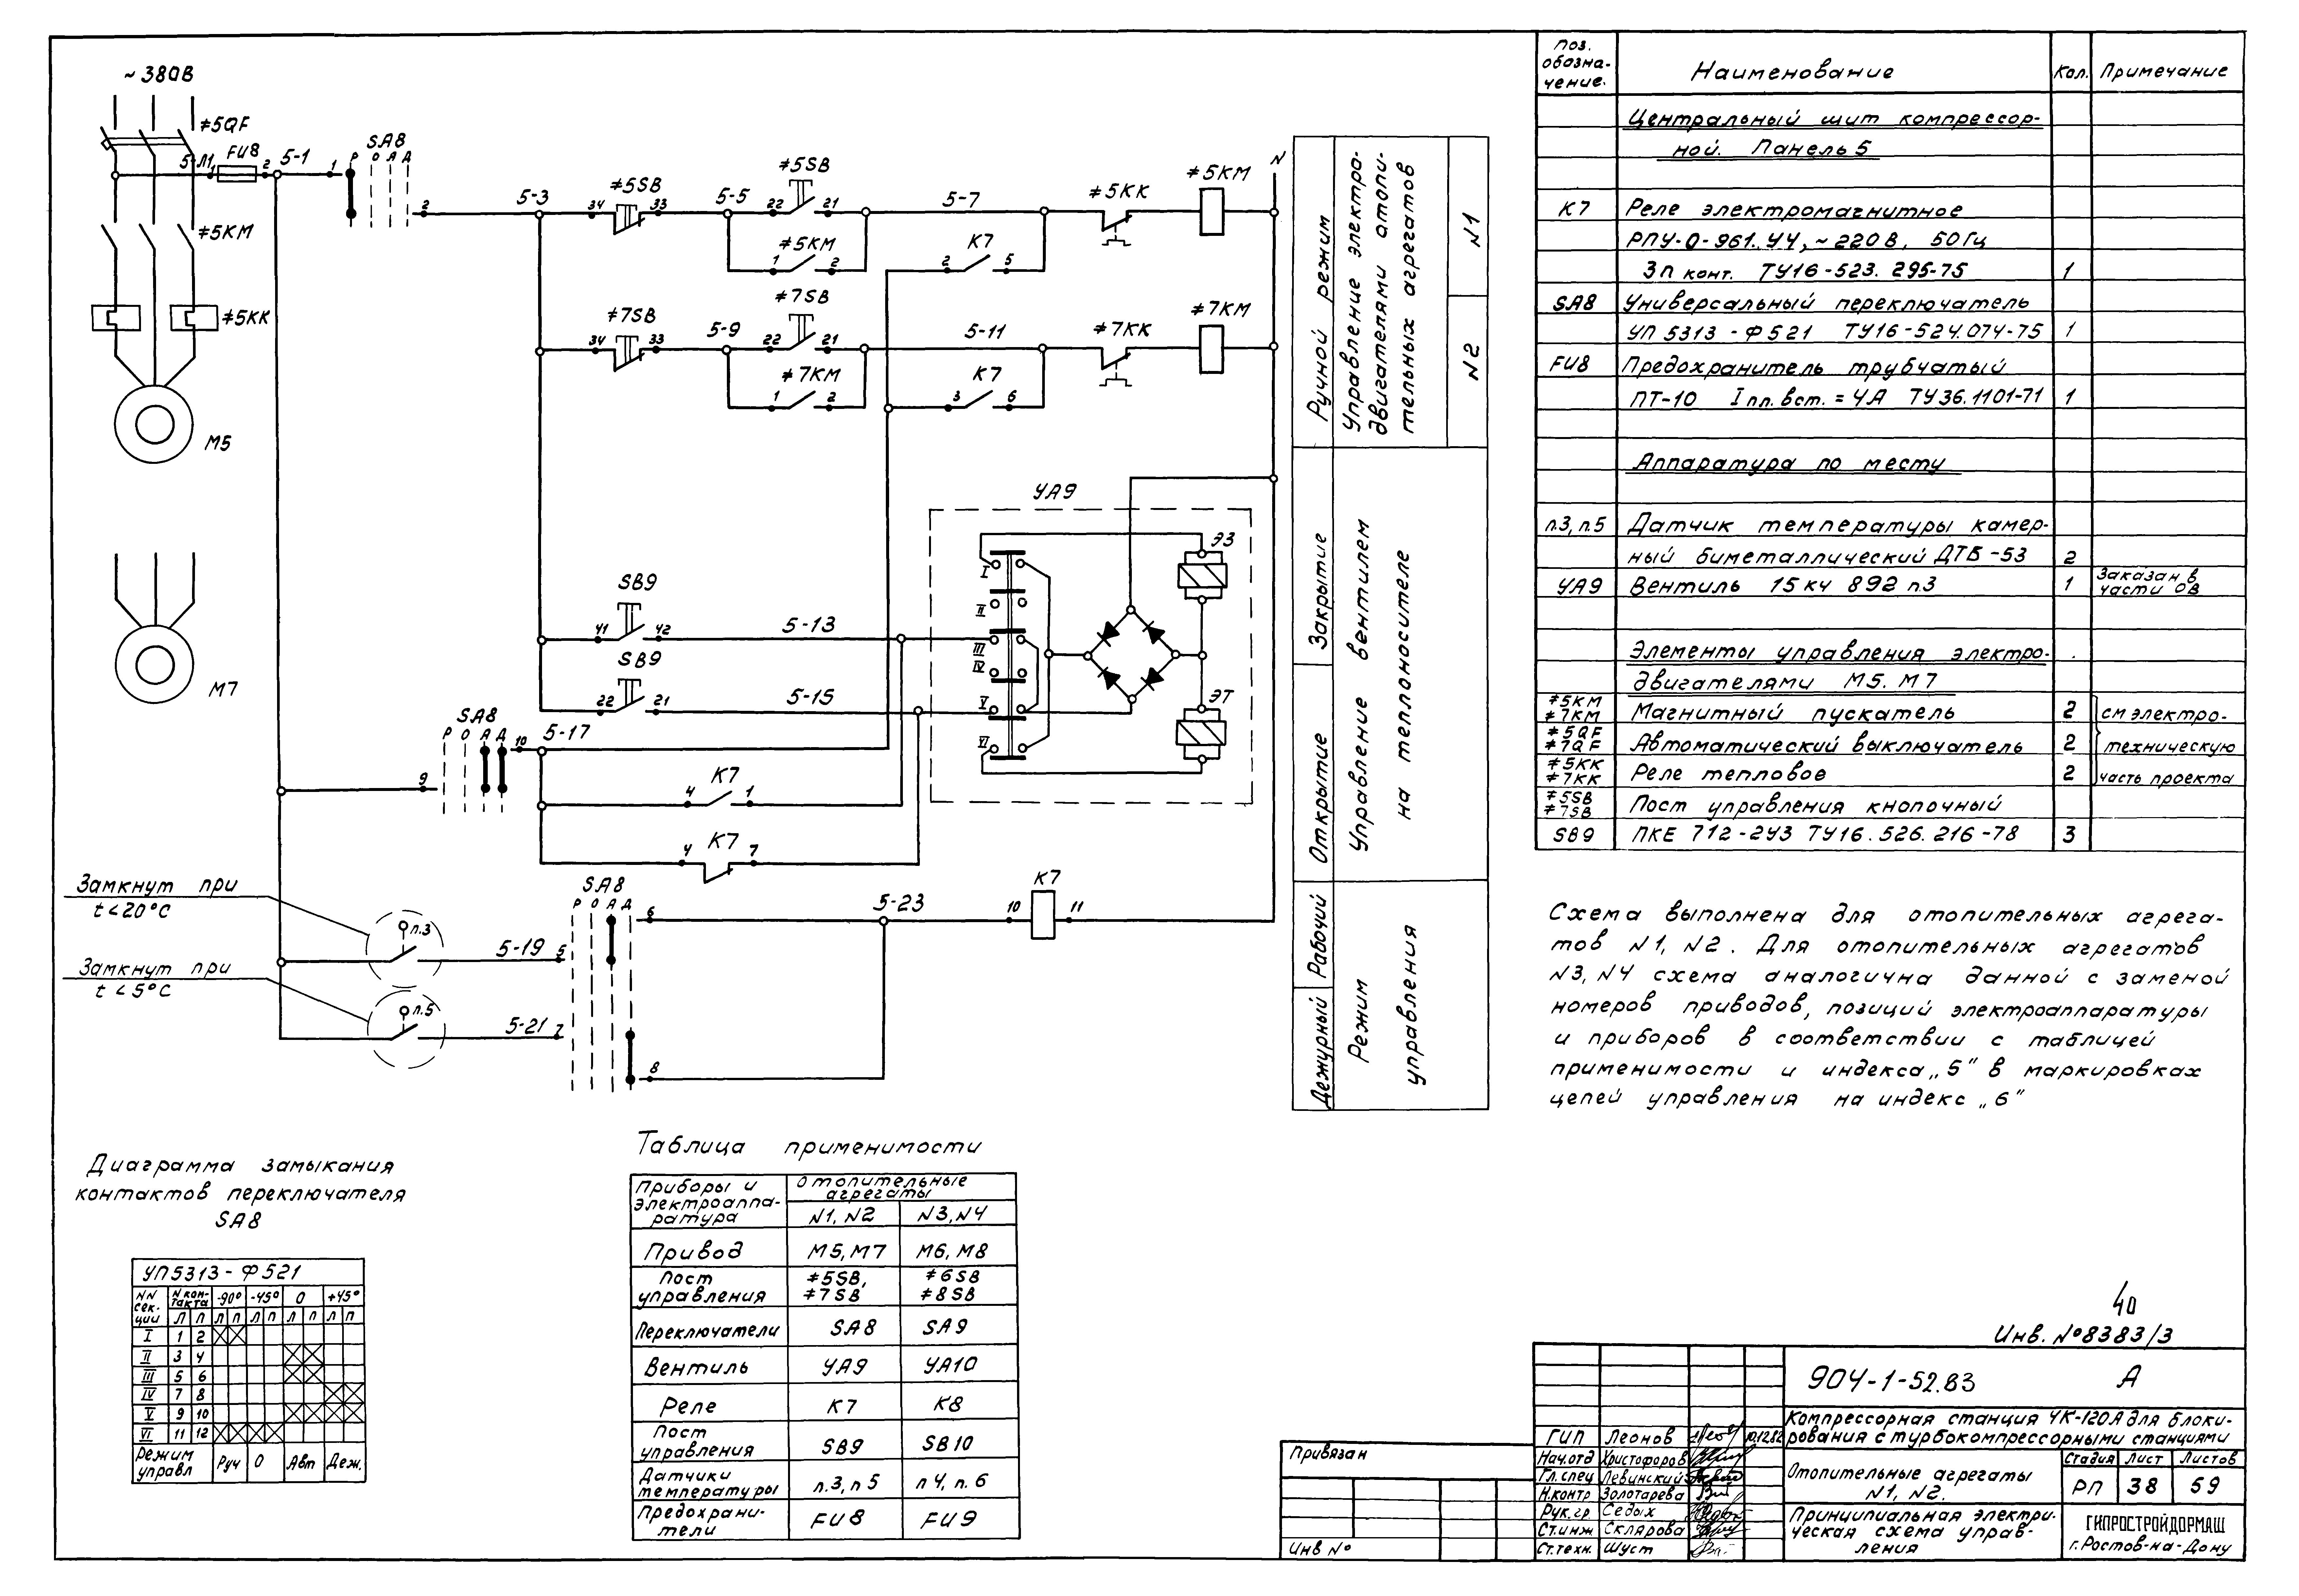 ~ 380В
≠5QF
5-Л1
1
FU8
2
5-1
1
SA8
Р О А Д
2
5-3
≠5SB
34
33
5-5
≠5SB
22
21
5-7
≠5KK
≠5KM
N
≠5KM
1
2
K7
2
5
≠5KM
≠5KK
M5
≠7SB
34
33
5-9
≠7SB
22
21
5-11
≠7KK
≠7KM
≠7KM
1
2
K7
3
6
M7
SB9
41
42
5-13
SB9
22
21
5-15
YA9
I
II
III
IV
V
VI
ЭЗ
ЭТ
SA8
Р О А Д
9
10
5-17
K7
4
1
K7
4
7
Замкнут при
t<20°C
п.3
5-19
5
Замкнут при
t<5°C
п.5
5-21
7
SA8
Р О А Д
6
8
5-23
10
K7
11
Ручной режим
Управление электро-
двигателями отопи-
тельных агрегатов
N1
N2
Закрытие
Открытие
Управление вентилем
на теплоносителе
Рабочий
Дежурный
Режим
управления
Поз.
обозна-
чение.
Наименование
Кол.
Примечание
Центральный щит компрессор-
ной. Панель 5
K7 Реле электромагнитное
РПУ-0-961.У4, ~220В, 50Гц
3п конт. ТУ16-523.295-75 1
SA8 Универсальный переключатель
УП 5313-Ф521 ТУ16-524.074-75 1
FU8 Предохранитель трубчатый
ПТ-10 Iпл.вст.=4А ТУ36.1101-71 1
Аппаратура по месту
п.3, п.5 Датчик температуры камер-
ный биметаллический ДТБ-53 2
YA9 Вентиль 15кч 892 п3 1 Заказан в
части ОВ
Элементы управления электро-
двигателями M5. M7
≠5KM
≠7KM Магнитный пускатель 2 см электро-
≠5QF
≠7QF Автоматический выключатель 2 техническую
≠5KK
≠7KK Реле тепловое 2 часть проекта
≠5SB
≠7SB Пост управления кнопочный
SB9 ПКЕ 712-2У3 ТУ16.526.216-78 3
Схема выполнена для отопительных агрега-
тов N1, N2. Для отопительных агрегатов
N3, N4 схема аналогична данной с заменой
номеров приводов, позиций электроаппаратуры
и приборов в соответствии с таблицей
применимости и индекса „5" в маркировках
цепей управления на индекс „6"
Диаграмма замыкания
контактов переключателя
SA8
УП5313-Ф521
NN
сек-
ции
N кон-
такта
-90° -45° 0 +45°
Л П Л П Л П Л П Л П
I 1 2
II 3 4
III 5 6
IV 7 8
V 9 10
VI 11 12
Режим
управл
Руч О Авт Деж.
Таблица применимости
Приборы и
электроаппа-
ратура
Отопительные
агрегаты
N1, N2 N3, N4
Привод M5, M7 M6, M8
Пост
управления
≠5SB,
≠7SB
≠6SB
≠8SB
Переключатели SA8 SA9
Вентиль YA9 YA10
Реле K7 K8
Пост
управления SB9 SB10
Датчики
температуры п.3, п5 п4, п.6
Предохрани-
тели FU8 FU9
40
Инв. №8383/3
904-1-52.83 А
Компрессорная станция 4К-120А для блоки-
рования с турбокомпрессорными станциями
ГИП Леонов 10.12.82
Нач.отд Христофоров
Гл.спец Левинский
Н.контр Золотарева
Рук.гр Седых
Ст.инж Склярова
Ст.техн. Шуст
Отопительные агрегаты
N1, N2.
Стадия Лист Листов
РП 38 59
Принципиальная электри-
ческая схема управ-
ления
ГИПРОСТРОЙДОРМАШ
г.Ростов-на-Дону
Привязан
Инв №